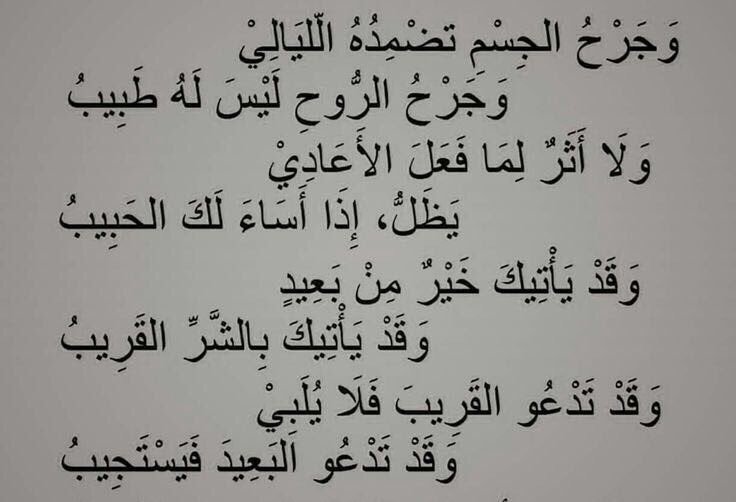 وَجَرْحُ الجِسْمِ تضْمِدُهُ الّليَالِيْ
وَجَرْحُ الرُّوحِ لَيْسَ لَهُ طَبِيبُ
وَلَا أَثَرٌ لِمَا فَعَلَ الأَعَادِيْ
يَظَلُّ، إِذَا أَسَاءَ لَكَ الحَبِيبُ
وَقَدْ يَأْتِيكَ خَيْرٌ مِنْ بَعِيدٍ
وَقَدْ يَأْتِيكَ بِالشَّرِّ القَرِيبُ
وَقَدْ تَدْعُو القَرِيبَ فَلَا يُلَبِيْ
وَقَدْ تَدْعُو البَعِيدَ فَيَسْتَجِيبُ